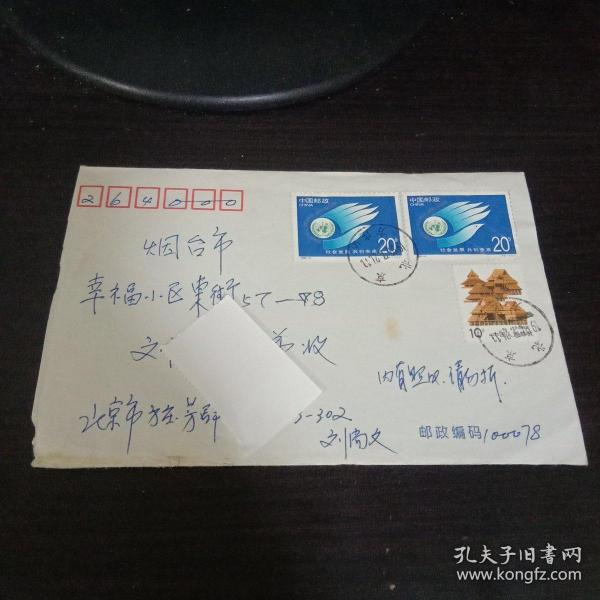 264000
中国邮政
CHINA
20分
社会发展 共创未来
中国邮政
CHINA
20分
社会发展 共创未来
烟台市
幸福小区东街57—48
文 收
10
北京
北京
内有照片.请勿折.
北京市方庄芳群 3-302
刘尚文
邮政编码100078
孔夫子旧书网
www.kongfz.com